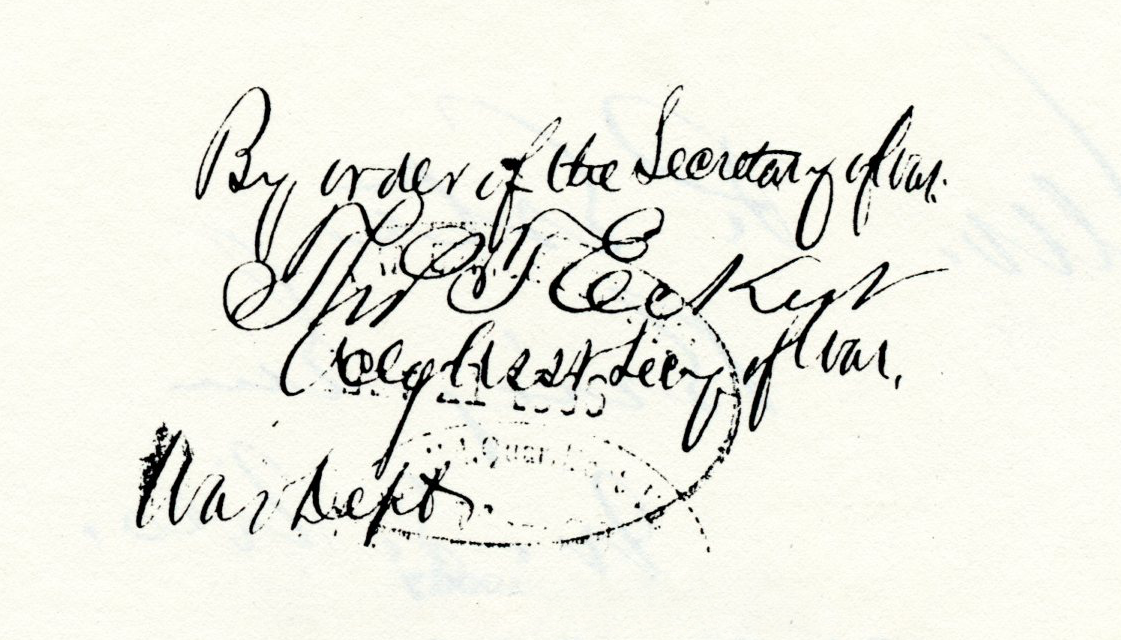 By order of the Secretary of War.
Thos T Eckert
Actg Asst Secy of War.
War Dept